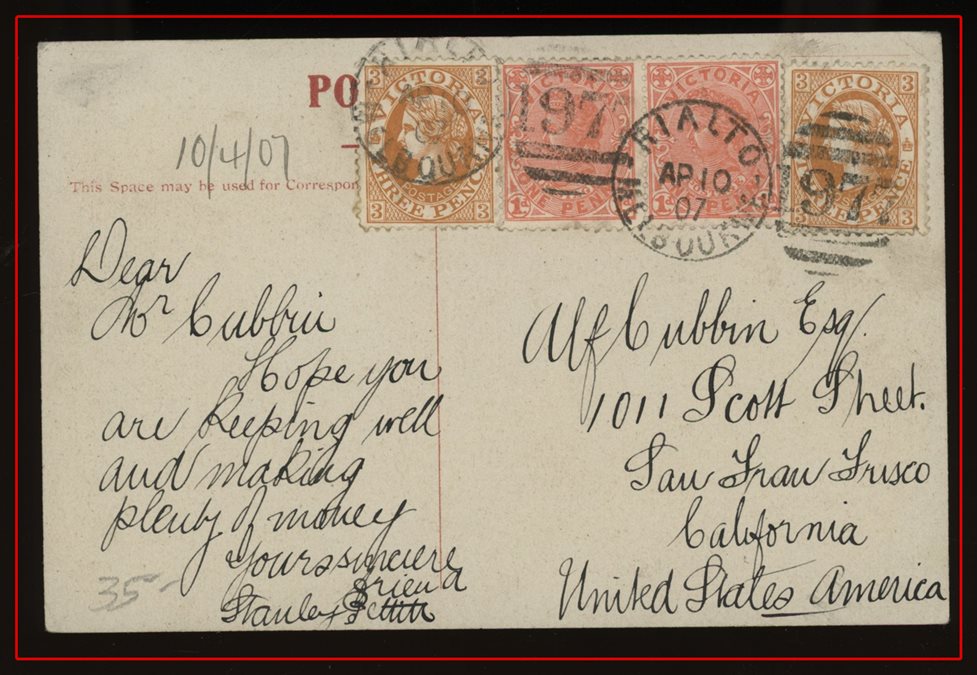 PO
VICTORIA
3 3
THREE PENCE
POSTAGE
3 3
VICTORIA
197
1D 1D
ONE PENNY
VICTORIA
1D
RIALTO
AP 10
07
MELBOURNE
VICTORIA
3 3
197
3
10/4/07
This Space may be used for Correspon
Dear
Mr Cubbin
Hope you
are keeping well
and making
plenty of money
Yours sincere
friend
Stanley
35-
Alf Cubbin Esq.
1011 Scott Street.
San Fran Frisco
California
United States America